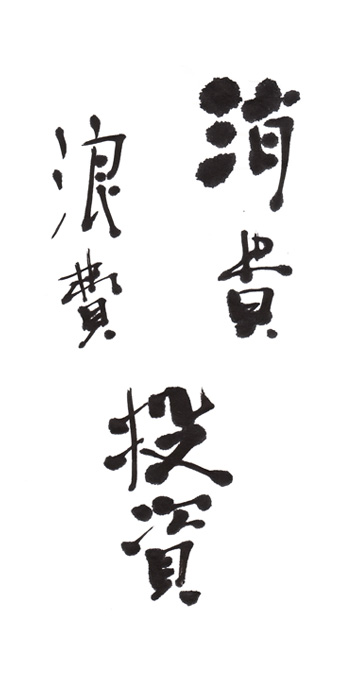 消費
浪費
投資